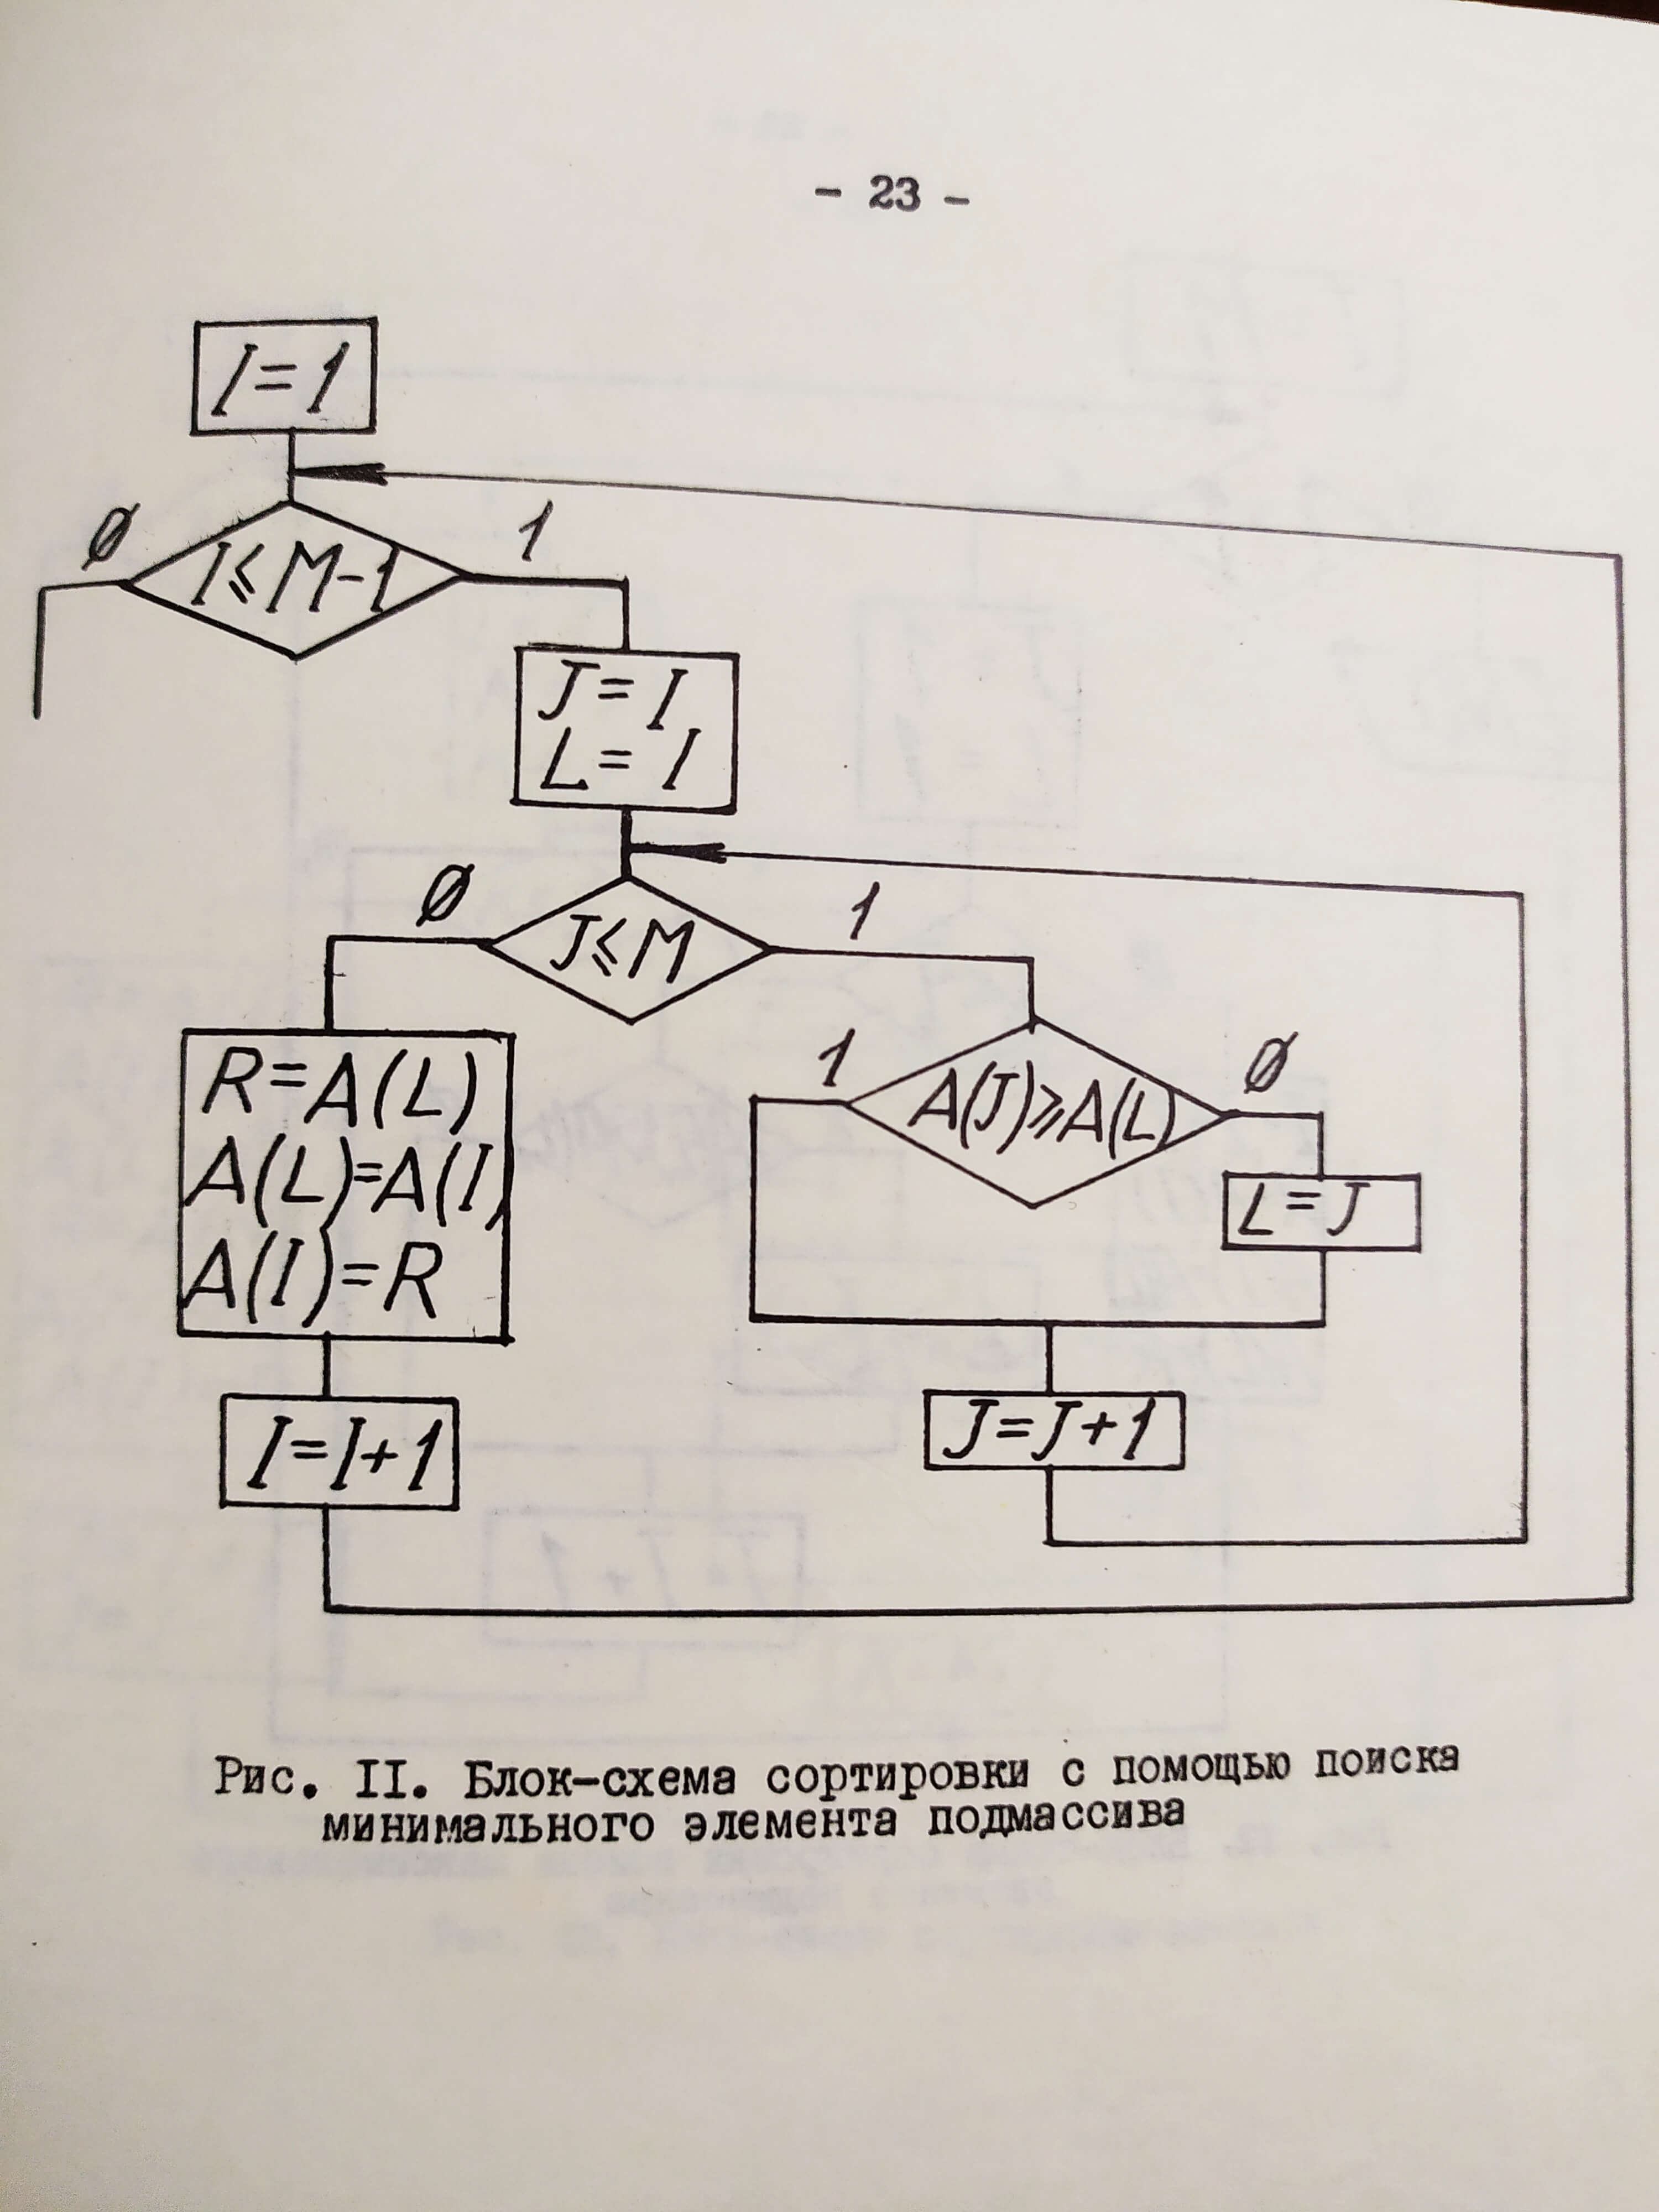 - 23 -
I=1
Ø
I≤M-1
1
J=I
L=I
Ø
J≤M
1
R=A(L)
A(L)=A(I)
A(I)=R
1
A(J)≥A(L)
Ø
L=J
I=I+1
J=J+1
Рис. II. Блок-схема сортировки с помощью поиска
минимального элемента подмассива